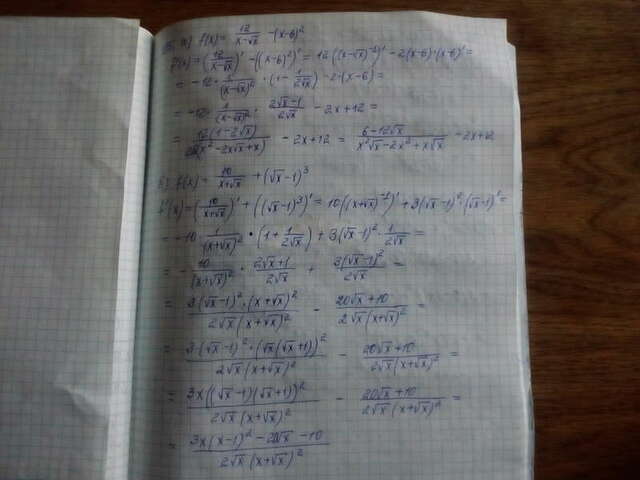 а) f(x) = 12/(x-√x) - (x-6)²
f'(x) = (12/(x-√x))' - ((x-6)²)' = 12((x-√x)⁻¹)' - 2(x-6)·(x-6)' =
= -12 · 1/(x-√x)² · (1 - 1/(2√x)) - 2·(x-6) =
= -12 · 1/(x-√x)² · (2√x-1)/(2√x) - 2x+12 =
- 2x+12 = (6-12√x)/(x²√x-2x²+x√x) - 2x+12
f(x) = 10/(x+√x) + (√x-1)³
f'(x) = (10/(x+√x))' + ((√x-1)³)' = 10((x+√x)⁻¹)' + 3(√x-1)²·(√x-1)' =
= -10 · 1/(x+√x)² · (1 + 1/(2√x)) + 3(√x-1)² · 1/(2√x) =
= - 10/(x+√x)² · (2√x+1)/(2√x) + 3(√x-1)²/(2√x) =
= 3(√x-1)²·(x+√x)²/(2√x(x+√x)²) - (20√x+10)/(2√x(x+√x)²) =
= 3(√x-1)²·(√x(√x+1))²/(2√x(x+√x)²) - (20√x+10)/(2√x(x+√x)²) =
= 3x((√x-1)(√x+1))²/(2√x(x+√x)²) - (20√x+10)/(2√x(x+√x)²) =
= (3x(x-1)²-20√x-10)/(2√x(x+√x)²)